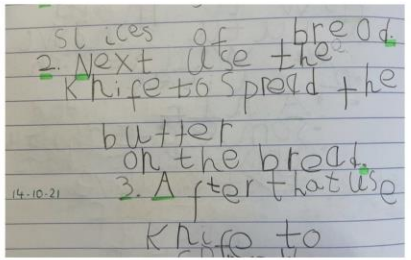 slices of bread.
2. Next use the
knife to spread the
butter
on the bread.
14-10-21 3. After that use
knife to